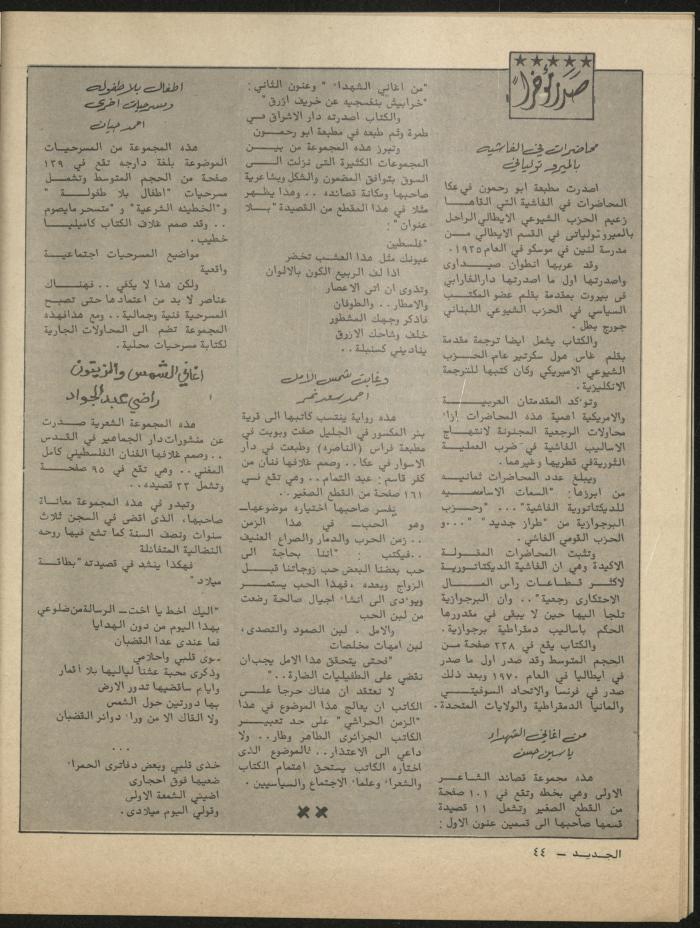 صدر مؤخراً
محاضرات في الفاشيه
بالميرو تولياتي
اصدرت مطبعة ابو رحمون في عكا
المحاضرات في الفاشية التي القاها
زعيم الحزب الشيوعي الايطالي الراحل
بالميرو تولياتي في القسم الايطالي مـن
مدرسة لنين في موسكو في العام ١٩٣٥.
وقد عربها انطوان صيـــداوى
واصدرتها اول ما اصدرتها دار الفارابي
في بيروت بمقدمة بقلم عضو المكتـــب
السياسي في الحزب الشيوعي اللبناني
جورج بطل.
والكتاب يشمل ايضا ترجمة مقدمة
بقلم غاس هول سكرتير عام الحـــزب
الشيوعي الاميريكي وكان كتبها للترجمة
الانكليزية.
وتوكد المقدمتان العربيـــة
والامريكية اهمية هذه المحاضرات ازاء
محاولات الرجعية المجنونة لانتهــاج
الاساليب الفاشية في ضرب العمليـة
الثورية في قطريها وغيرهما.
ويبلغ عدد المحاضرات ثمانيـه
من ابرزها: "السمات الاساسـيه
للديكتاتورية الفاشية"... "وحـــزب
البرجوازية من "طراز جديد" "...و
الحزب القومي الفاشي.
وتثبت المحاضرات المقـــولة
الاكيدة وهي ان الفاشية الديكتاتوريـة
لاكثــر قطـاعـات رأس المـــال
الاحتكارى رجعية".. وان البرجوازية
تلجأ اليها حين لا يبقى في مقدورها
الحكم باساليب دمقراطية برجوازية.
والكتاب يقع في ٢٣٨ صفحة مـن
الحجم المتوسط وقد صدر اول ما صدر
في ايطاليا في العام ١٩٧٠ وبعد ذلك
صدر في فرنسا والاتحاد السوفيتـــي
والمانيا الدمقراطية والولايات المتحدة.
من اغاني الشهداء
ياسين حسن
هذه مجموعة قصائد الشـاعـــر
الاولى وهي بخطه وتقع في ١٠١ صفحة
من القطع الصغير وتشمل ١١ قصيدة
قسمها صاحبها الى قسمين عنون الاول:
"من اغاني الشهداء" وعنون الثاني:
"خرابيش بنفسجيه عن خريف ازرق"
والكتاب اصدرته دار الاشراق في
طمرة وتم طبعه في مطبعة ابو رحمـون
وتبرز هذه المجموعة من بيـــن
المجموعات الكثيرة التي نزلت الـــى
السوق بتوافق المضمون والشكل وبشاعرية
صاحبها ومكانة قصائده... وهذا يظهر
مثلا في هذا المقطع من القصيدة "بـــلا
عنوان":
"فلسطين
عيونك مثل هذا العشب تخضر
اذا لف الربيع الكون بالالوان
وتذوى ان اتى الاعصار
والامطار.. والطوفان
فاذكر وجهك المشطور
خلف وشاحك الازرق
يناديني كسنبلة..
وغابت شمس الامل
احمد سعد نمر
هذه رواية ينتسب كاتبها الى قرية
بئر المكسور في الجليل صفت وبوبت في
مطبعة فراس (الناصره) وطبعت في دار
الاسوار في عكا.. وصمم غلافها فنان من
كفر قاسم: عبد التمام.. وهي تقع فـي
١٦١ صفحة من القطع الصغير..
يفسر صاحبها اختياره موضوعهـا
وهو الحبـ في هذا الزمن
.. زمن الحرب والدمار والصراع العنيف
..فيكتب: "اننا بحاجة الى
حب بعضنا البعض حب زوجاتنا قبــل
الزواج وبعده، فهذا الحب يستمــر
ويؤدى الى انشاء اجيال صالحة رضعت
من لبن الحب
والامل، لبن الصمود والتصدى،
لبن امهات مخلصات
"فحتى يتحقق هذا الامل يجب ان
نقضي على الطفيليات الضارة.."
لا نعتقد ان هناك حرجا علـــى
الكاتب ان يعالج هذا الموضوع في هذا
"الزمن الحراشي" على حد تعبيـــر
الكاتب الجزائرى الطاهر وطار.. ولا
داعي الى الاعتذار.. فالموضوع الذى
اختاره الكاتب يستحق اهتمام الكتاب
والشعراء وعلماء الاجتماع والسياسيين.
اطفال بلا طفوله
ومسرحيات اخرى
احمد
هذه المجموعة من المسرحيـات
الموضوعة بلغة دارجه تقع في ١٣٩
صفحة من الحجم المتوسط وتشمــل
مسرحيات "اطفال بلا طفولـــة"
و"الخطيئه الشرعية" و"متسحر مايصوم
.. وقد صمم غلاف الكتاب كاميليـــا
خطيب.
مواضيع المسرحيات اجتماعيــة
واقعية
ولكن هذا لا يكفي.. فهنـــاك
عناصر لا بد من اعتمادها حتى تصبــح
المسرحية فنية وجمالية.. ومع هذا فهذه
المجموعة تضم الى المحاولات الجارية
لكتابة مسرحيات محلية.
اغاني الشمس والزيتون
راضي عبد الجواد
هذه المجموعة الشعرية صـــدرت
عن منشورات دار الجماهير في القدس
.. وصمم غلافها الفنان الفلسطيني كامل
المغني.. وهي تقع في ٩٥ صفحـــة
وتشمل ٢٢ قصيده...
وتبدو في هذه المجموعة معانـاة
صاحبها، الذى اقضى في السجن ثلاث
سنوات ونصف السنة كما تشع فيها روحه
النضالية المتفائلة
فهكذا ينشد في قصيدته "بطاقـــة
ميلاد"
"اليك اخط يا اخت- الرسالة من ضلوعي
بهذا اليوم من دون الهدايا
فما عندى عدا القضبان
..وى قلبي واحلامي
وذكرى محبة عشنا لياليها بلا اقمار
وايام سأقضيها تدور الارض
بها دورتين حول الشمس
ولا القاك الا من وراء دوائر القضبان
...
خذى قلبي وبعض دفاترى الحمراء
ضعيها فوق احجارى
اضيئي الشمعة الاولى
وقولي اليوم ميلادى.
الجديد - ٤٤